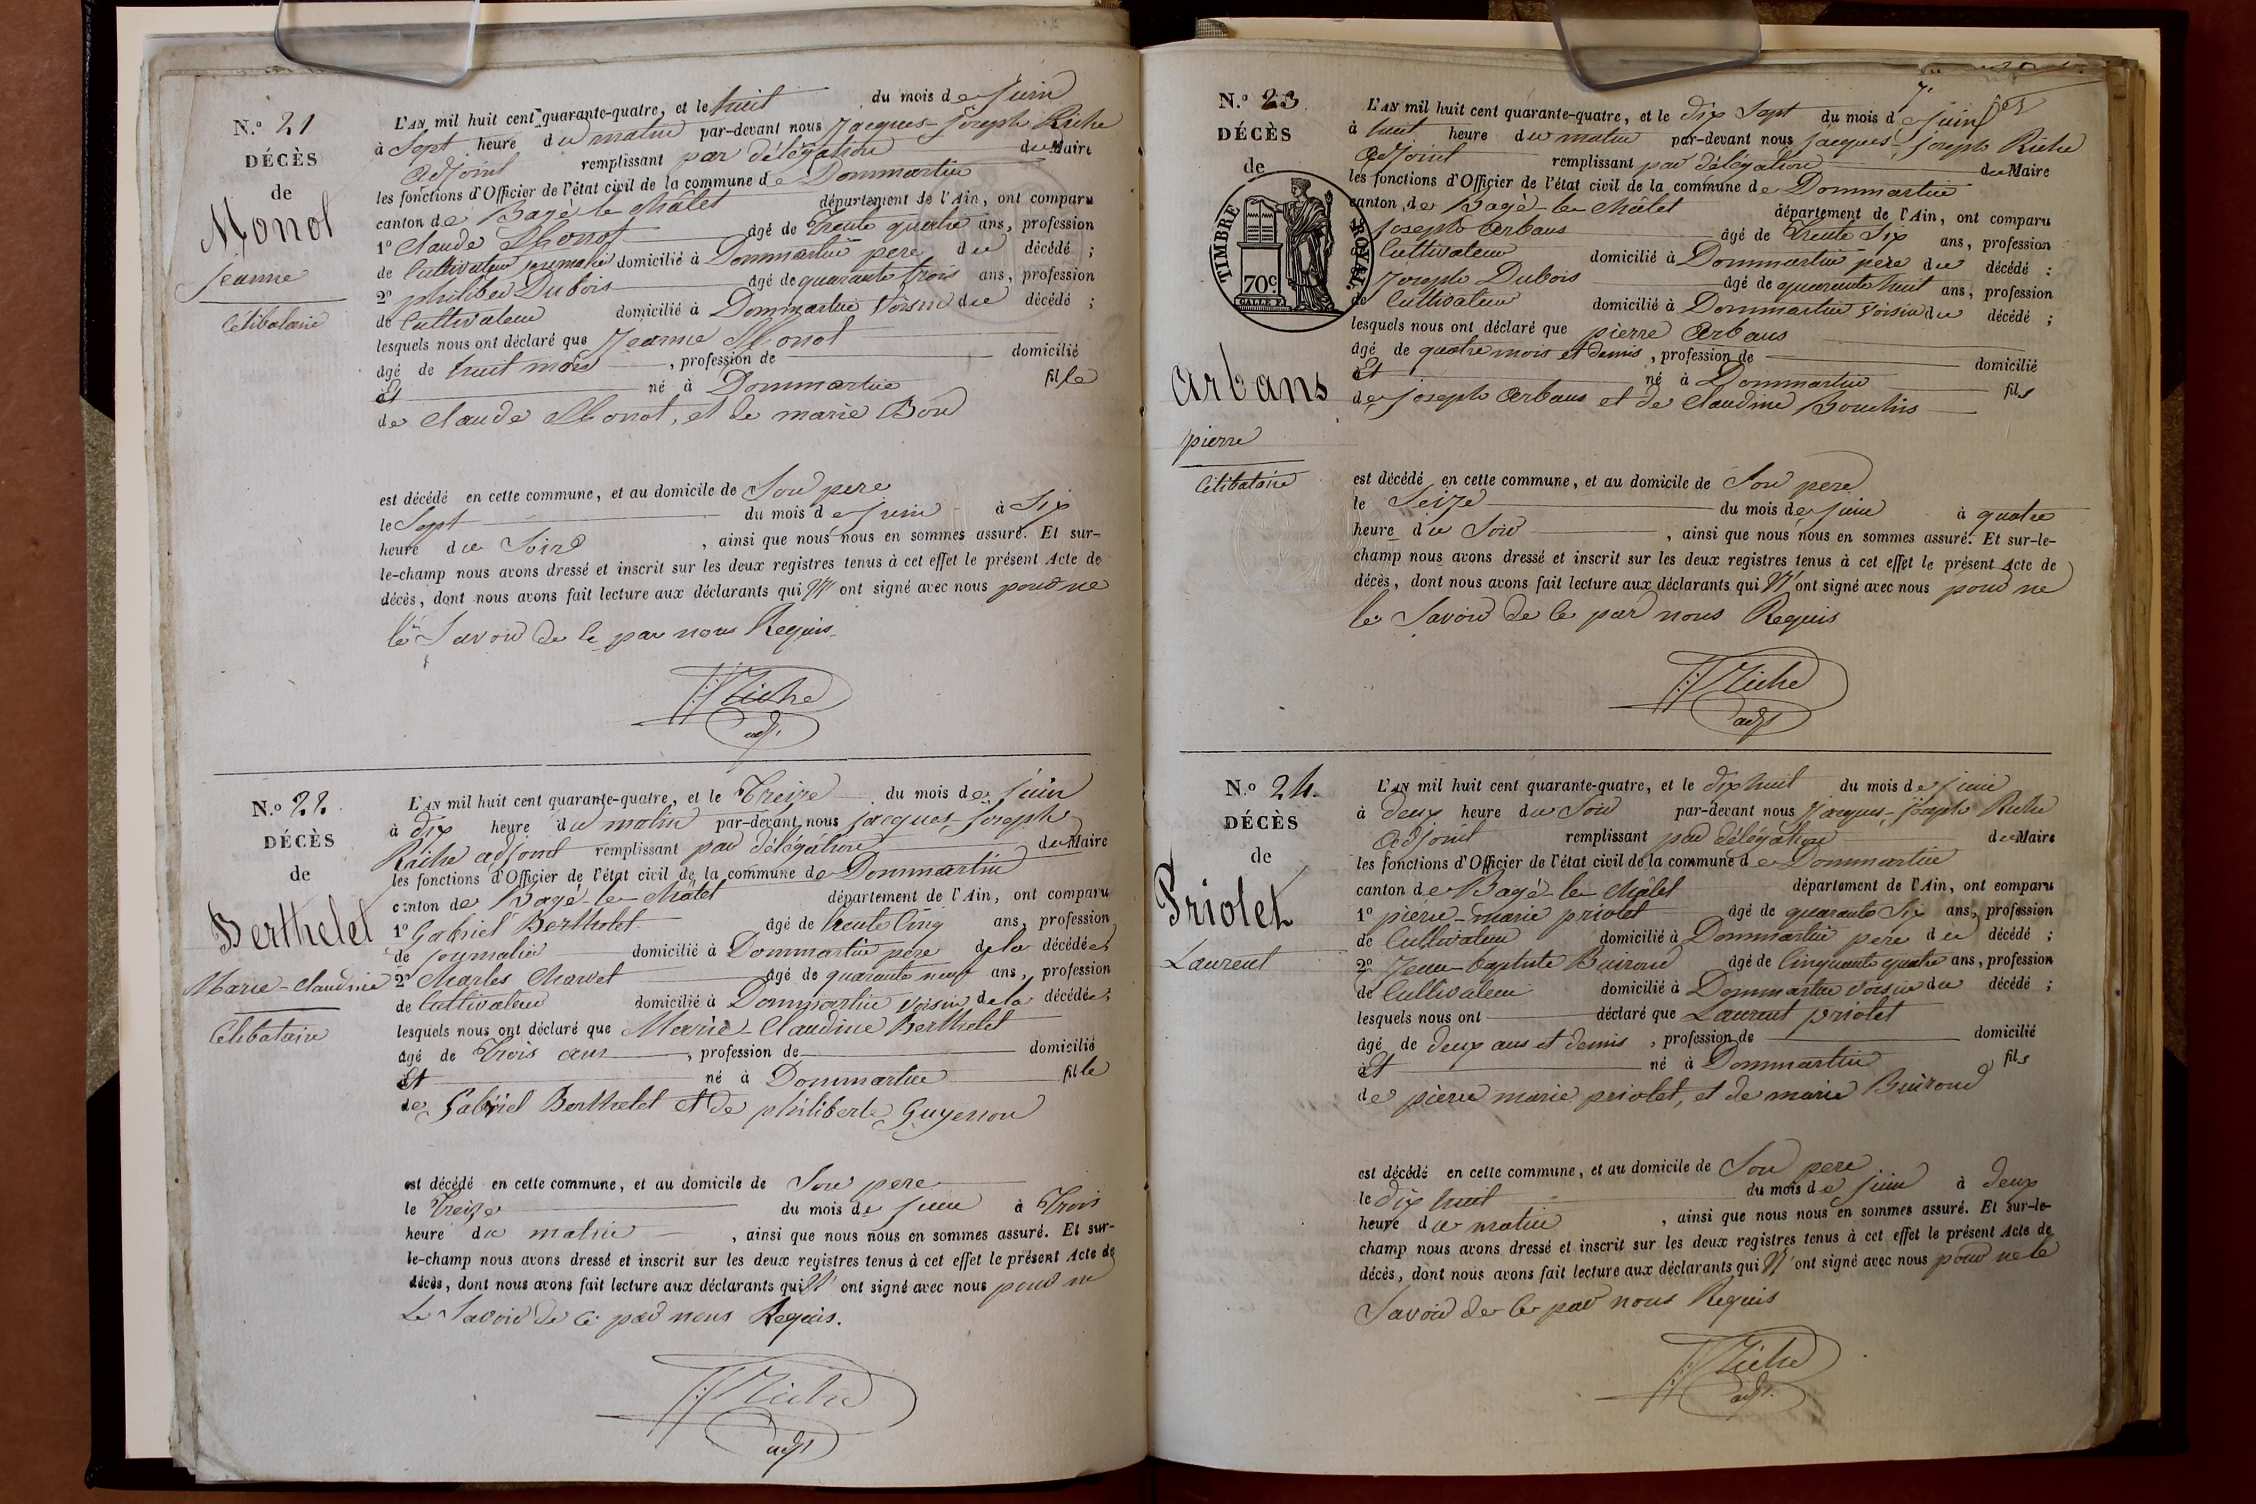 N.º 21
DÉCÈS
de
Monot
Jeanne
Célibataire
L'AN mil huit cent quarante-quatre, et le huit du mois de Juin
à Sept heure du matin par-devant nous Jacques-Joseph Riche
adjoint remplissant par délégation du Maire
les fonctions d'Officier de l'état civil de la commune de Dommartin
canton de Bagé-le-Châtel département de l'Ain, ont comparu
1º Claude Monot âgé de Trente quatre ans, profession
de Cultivateur journalier domicilié à Dommartin père du décédé ;
2º philiber Dubois âgé de quarante trois ans, profession
de Cultivateur domicilié à Dommartin Voisin du décédé ;
lesquels nous ont déclaré que Jeanne Monot
âgé de huit mois , profession de domicilié
à Et né à Dommartin fille
de Claude Monot, et de marie Bon
est décédé en cette commune, et au domicile de Son pere
le Sept du mois de juin à Six
heure du Soir , ainsi que nous nous en sommes assuré. Et sur-
le-champ nous avons dressé et inscrit sur les deux registres tenus à cet effet le présent Acte de
décès, dont nous avons fait lecture aux déclarants qui N' ont signé avec nous pour ne
le Savoir de ce par nous Requis
JJRiche
adjt
N.º 22.
DÉCÈS
de
Berthelet
Marie-Claudine
Célibataire
L'AN mil huit cent quarante-quatre, et le Treize du mois de juin
à dix heure du matin par-devant nous jacques-joseph
Riche adjoint remplissant par délégation du Maire
les fonctions d'Officier de l'état civil de la commune de Dommartin
canton de Bagé-le-Châtel département de l'Ain, ont comparu
1º Gabriel Berthelet âgé de trente Cinq ans, profession
de journalier domicilié à Dommartin père de la décédée
2º Charles Charvet âgé de quarante neuf ans, profession
de Cultivateur domicilié à Dommartin Voisin de la décédée ;
lesquels nous ont déclaré que Marie-Claudine Berthelet
âgé de Trois ans , profession de domicilié
à Et né à Dommartin fille
de Gabriel Berthelet et de philiberte Guyennon
est décédé en cette commune, et au domicile de Son pere
le treize du mois de juin à Trois
heure du matin , ainsi que nous nous en sommes assuré. Et sur-
le-champ nous avons dressé et inscrit sur les deux registres tenus à cet effet le présent Acte de
décès, dont nous avons fait lecture aux déclarants qui N' ont signé avec nous pour ne
Le Savoir de ce par nous Requis.
JJRiche
adjt
7.
N.º 23.
DÉCÈS
de
TIMBRE ROYAL
70c
Arbans
pierre
Célibataire
L'AN mil huit cent quarante-quatre, et le dix Sept du mois d juin
à huit heure du matin par-devant nous jacques-joseph Riche
adjoint remplissant par délégation du Maire
les fonctions d'Officier de l'état civil de la commune de Dommartin
canton de Bagé-le-Châtel département de l'Ain, ont comparu
1º Joseph Arbans âgé de Trente Six ans, profession
Cultivateur domicilié à Dommartin père du décédé ;
Joseph Dubois âgé de quarante huit ans, profession
de Cultivateur domicilié à Dommartin Voisin du décédé ;
lesquels nous ont déclaré que pierre Arbans
âgé de quatre mois et demis , profession de domicilié
à Et né à Dommartin fils
de joseph Arbans et de Claudine Bouchis
est décédé en cette commune, et au domicile de Son pere
le Seize du mois de juin à quatre
heure du Soir , ainsi que nous nous en sommes assuré. Et sur-le-
champ nous avons dressé et inscrit sur les deux registres tenus à cet effet le présent Acte de
décès, dont nous avons fait lecture aux déclarants qui N' ont signé avec nous pour ne
le Savoir de ce par nous Requis
JJRiche
adjt
N.º 24.
DÉCÈS
de
Priolet
Laurent
L'AN mil huit cent quarante-quatre, et le dix huit du mois de juin
à deux heure du Soir par-devant nous Jacques-joseph Riche
adjoint remplissant par délégation du Maire
les fonctions d'Officier de l'état civil de la commune de Dommartin
canton de Bagé-le-Châtel département de l'Ain, ont comparu
1º pierre-marie priolet âgé de quarante Six ans, profession
de Cultivateur domicilié à Dommartin pere du décédé ;
2º Jean-baptiste Buiron âgé de Cinquante quatre ans, profession
de Cultivateur domicilié à Dommartin Voisin du décédé ;
lesquels nous ont déclaré que Laurent priolet
âgé de deux ans et demis , profession de domicilié
à Et né à Dommartin fils
de pierre marie priolet, et de marie Buiron
est décédé en cette commune, et au domicile de Son pere
le dix huit du mois de juin à deux
heure du matin , ainsi que nous nous en sommes assuré. Et sur-le-
champ nous avons dressé et inscrit sur les deux registres tenus à cet effet le présent Acte de
décès, dont nous avons fait lecture aux déclarants qui N' ont signé avec nous pour ne le
Savoir de ce par nous Requis
JJRiche
adjt.